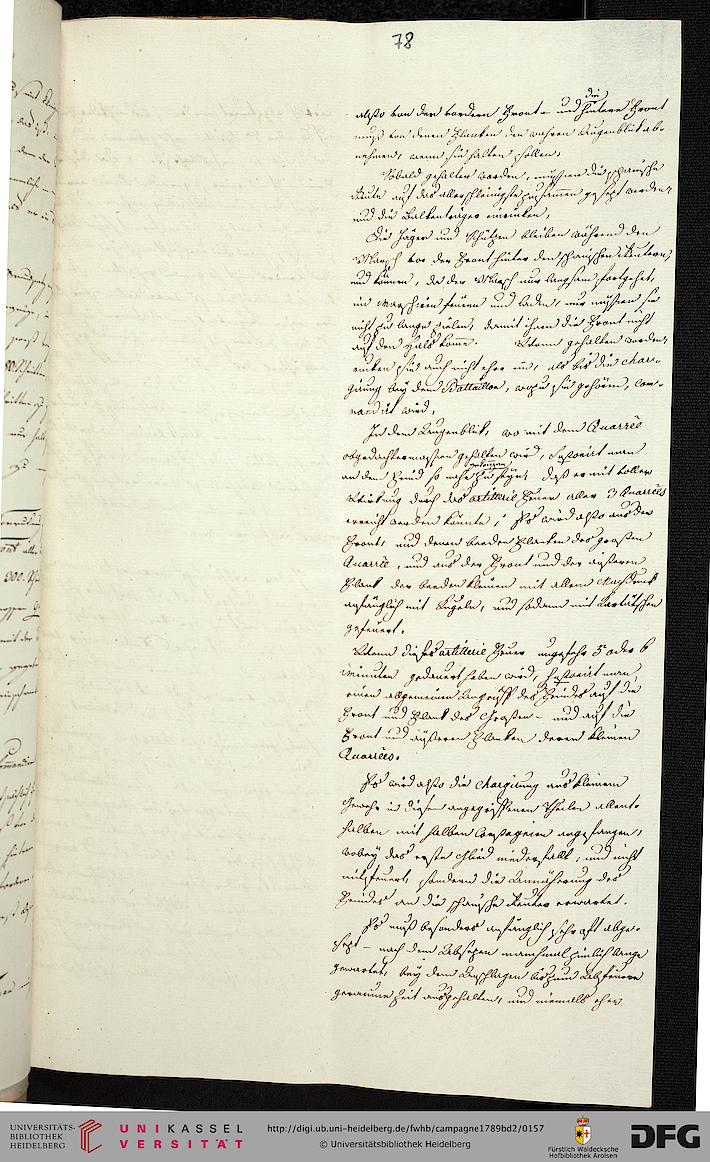 78
die
also von der vordern Front - und hintern Front
muß von denen Flanken den wahren Augenblick ab-
nehmen, wenn sie halten sollen.
Sobald gehalten worden, müssen die spanische
Reuter auf das allerschleunigste zusammen gesezt werden,
und die Balkenträger einrücken,
Die Jäger und Schützen bleiben während dem
Marsch vor der Front hinter den spanischen Reutern,
und können, da der Marsch nur langsam fortgehet,
im Marschiren feuern und laden, nur müssen sie
nicht zu lange zielen, damit ihnen die Front nicht
auf den Hals komme. Wann gehalten worden,
rücken sie auch nicht eher ein, als bis die Char-
girung bey dem Bataillon, wozu sie gehören, com-
mandirt wird.
In dem Augenblick, wo mit dem Quarrée
obgedachtermassen gehalten wird, supponirt man
an den Feind so nahe gekommen zu seyn, daß er mit voller
Würkung durch das Artillerie Feuer aller 3 Quarrées
erreicht werden könnte; Es wird also aus der
Front, und denen beeden Flanken des grossen
Quarrée, und aus der Front und der äusseren
Flank der beeden kleinen mit allem Nachdruck
anfänglich mit Kugeln, und sodann mit Kartätschen
gefeuert.
Wann dieses Artillerie Feuer ungefehr 5 oder 6
Minuten gedauert haben wird, supponirt man
einen allgemeinen Angriff des Feindes auf die
Front und Flank des Grossen - und auf die
Front und äusseren Flanken deren kleinen
Quarrées.
Es wird also die Chargirung aus kleinem
Gewehr in diesen angegriffenen Theilen allent-
halben mit halben Compagnien angefangen,
wobey das erste Glied niederfällt, und nicht
mitfeuert, sondern die Annäherung des
Feindes an die spanische Reuter erwartet.
Es muß besonders anfänglich sehr oft abge-
sezt - nach dem Absetzen manchmal zimlich lange
gewartet, bey dem Anschlagen bis zum Abfeuern
geraume Zeit ausgehalten, und niemals eher
UNIVERSITÄTS-
BIBLIOTHEK
HEIDELBERG
UNIKASSEL
VERSITÄT
http://digi.ub.uni-heidelberg.de/fwhb/campagne1789bd2/0157
© Universitätsbibliothek Heidelberg
Fürstlich Waldecksche
Hofbibliothek Arolsen
DFG